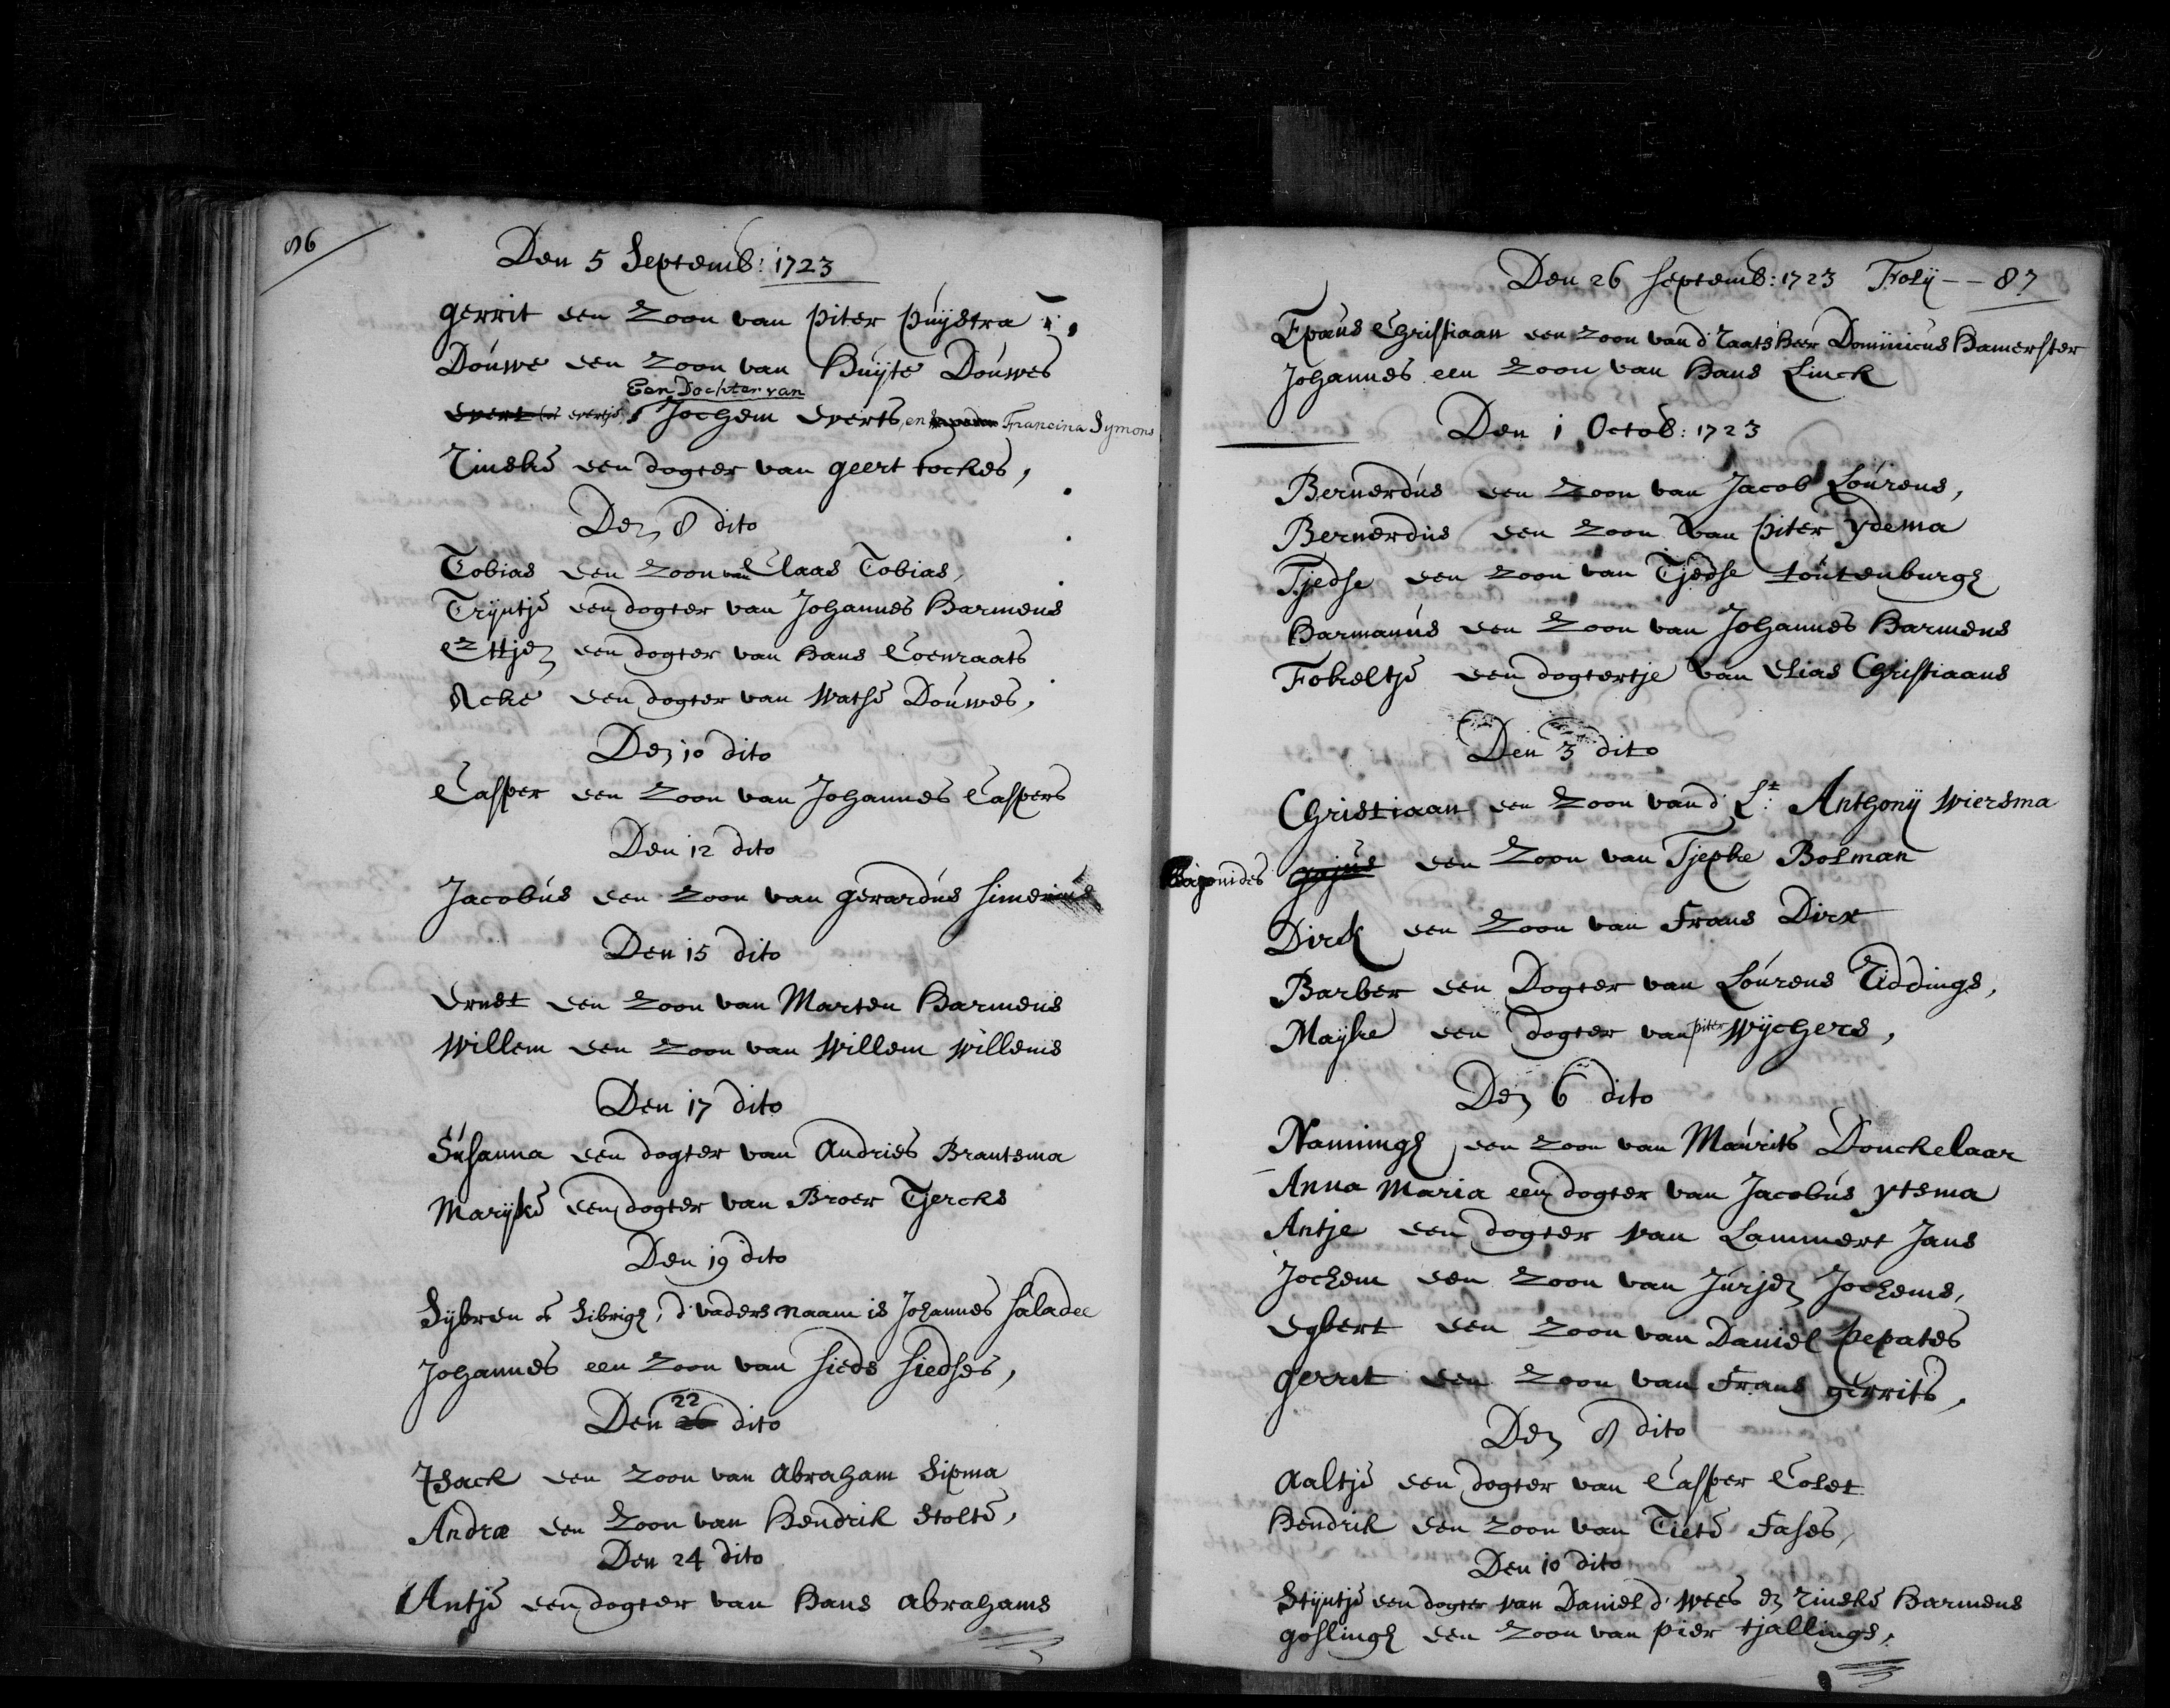 86
Den 5 Septemb: 1723
gerrit een zoon van piter puijstra
Douwe een zoon van Huijte Douwes
Een Dochter van
Evert of evertje Jochem Everts, en Francina Symons
Rinske een dogter van geert tockes,
Den 8 dito
Tobias een zoon van Claas Tobias,
Trijntje een dogter van Johannes Harmens
Ettjen een dogter van Hans Coenraats
Acke een dogter van Watse Douwes,
Den 10 dito
Casper een zoon van Johannes Caspers
Den 12 dito
Jacobus een zoon van gerardus
Den 15 dito
Ernst een zoon van Marten Harmens
Willem een zoon van Willem Willems
Den 17 dito
Susanna een dogter van Andries Brantsma
Marijke een dogter van Broer Tjercks
Den 19 dito
Sijbren of Sibrigh, d'vaders naam is Johannes Saladee
Johannes een zoon van Sieds Siedses,
22
Den 26 dito
Isack een zoon van Abraham Sipma
Andræ een zoon van Hendrik Stolte,
Den 24 dito
Antje een dogter van Hans Abrahams
Den 26 Septemb: 1723 Foly -- 87
Christiaan een zoon van d'raatsheer Dominicus Hamerster
Johannes een zoon van Hans Linck
Den 1 Octob: 1723
Bernerdus een zoon van Jacob Lourens,
Bernerdus een zoon van piter ydema
Tjedse een zoon van Tjedse toutenburgh
Harmanus een zoon van Johannes Harmens
Fokeltje een dogtertje van Elias Christiaans
Den 3 dito
Christiaan een zoon van d' Lt: Anthonij Wiersma
gajus een zoon van Tjepke Bolman
Dirck een zoon van Frans Dirx
Barber een Dogter van Lourens Eiddings,
piter
Mayke een dogter van Wijchers,
Den 6 dito
Nanningh een zoon van Maurits Donckelaar
Anna Maria een dogter van Jacobus ytsma
Antje een dogter van Lammert Jans
Jochem een zoon van Jurjen Jochems,
Egbert een zoon van Daniel pepates
gerrit een zoon van Frans gerrits,
Den 8 dito
Aaltje een dogter van Casper Colet
Hendrik een zoon van Tiete Fases,
Den 10 dito
Stijntje een dogter van Daniel d' Wees en Rinske Harmens
goslingh een zoon van pier tjallings,